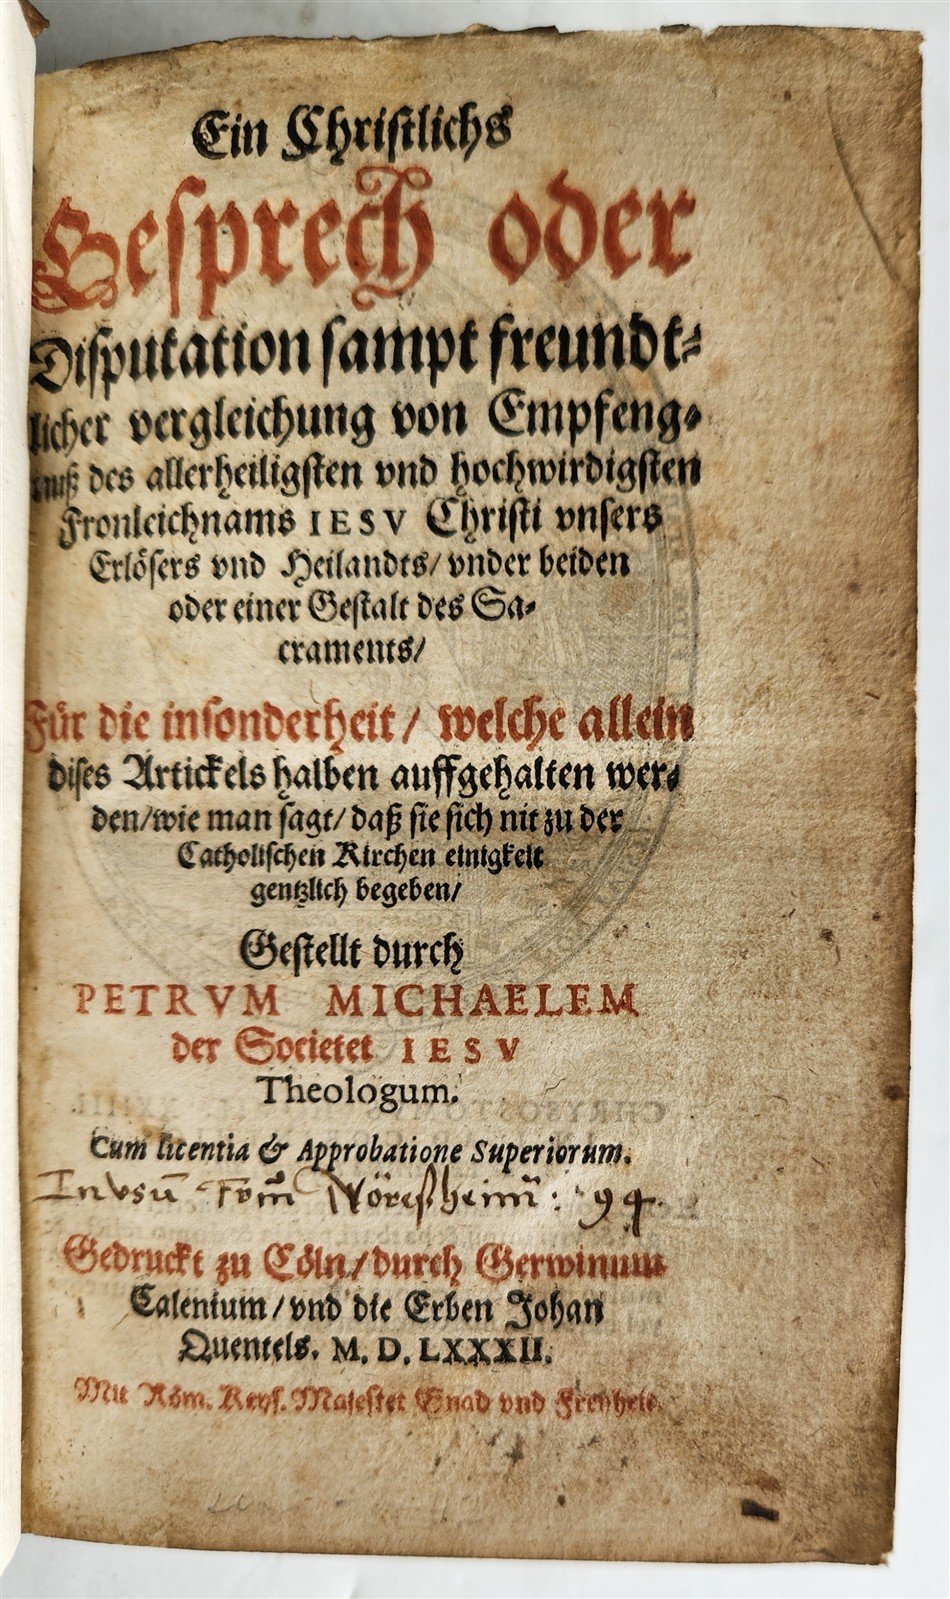 Ein Christlichs
Gesprech oder
Disputation sampt freundt-
licher vergleichung von Empfeng-
nuß des allerheiligsten vnd hochwirdigsten
Fronleichnams IESV Christi vnsers
Erlösers vnd Heilandts/ vnder beiden
oder einer Gestalt des Sa-
craments/
Für die insonderheit/ welche allein
dises Artickels halben auffgehalten wer-
den/ wie man sagt/ daß sie sich nit zu der
Catholischen Kirchen einigkeit
gentzlich begeben/
Gestellt durch
PETRVM MICHAELEM
der Societet IESV
Theologum.
Cum licentia & Approbatione Superiorum.
In vsū : 94.
Gedruckt zu Cöln/ durch Gerwinum
Calenium/ vnd die Erben Johan
Quentels. M. D. LXXXII.
Mit Röm. Keys. Maiestet Gnad vnd Freyheit.